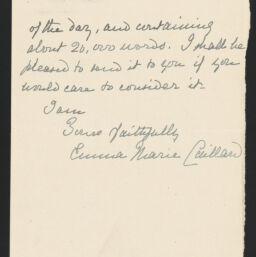 of the day, and containing
about 20,000 words. I shall be
pleased to send it to you if you
would care to consider it.
I am
Yours faithfully
Emma Marie Caillard